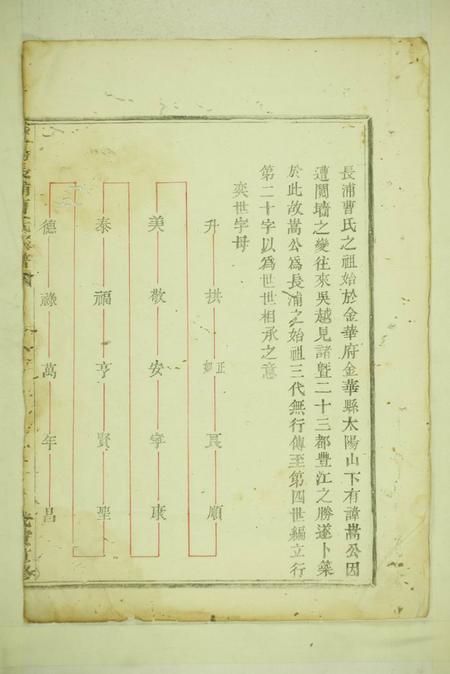 長浦曹氏之祖始於金華府金華縣太陽山下有諱嵩公因
遭鬩墻之變往來吳越見諸暨二十三都豐江之勝遂卜築
於此故嵩公爲長浦之始祖三代無行傳至第四世編立行
第二十字以爲世世相承之意
奕世字母
升 拱 正 良 順
美 敬 安 寧 康
泰 福 亨 賢 聖
德 祿 萬 年 昌